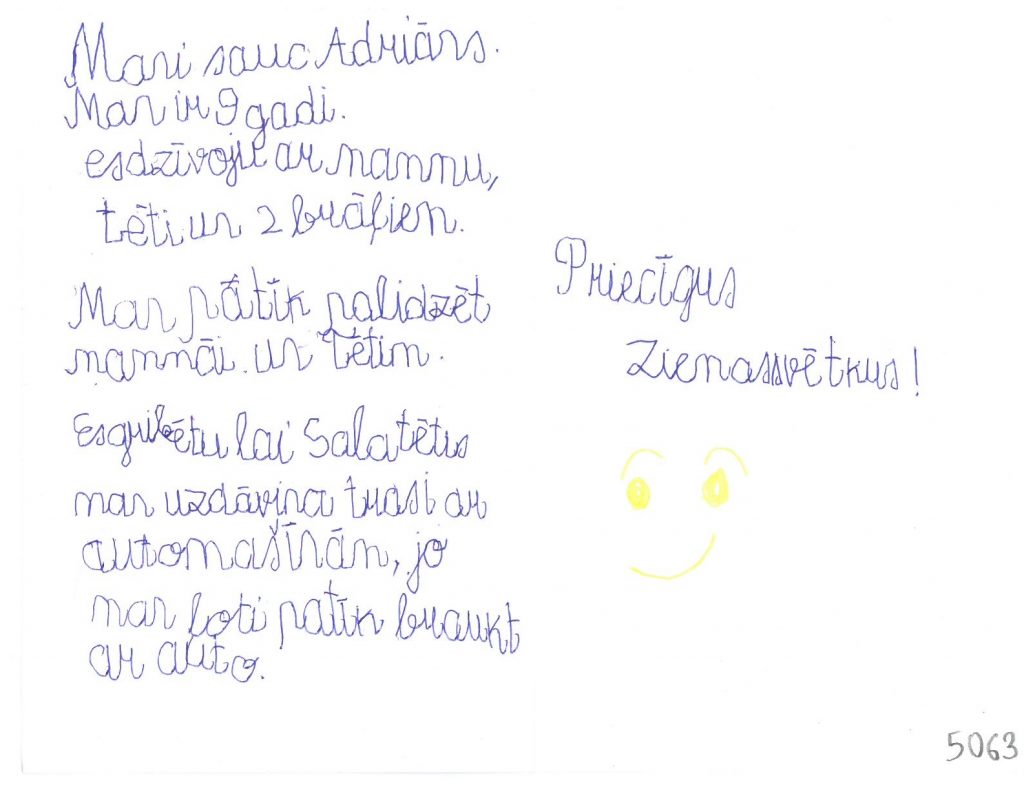 Mani sauc Adriāns.
Man ir 9 gadi.
es dzīvoju ar mammu,
tēti un 2 brāļiem.
Man pātīk palidzēt
mammāi. un Tētim.
Es gribētu lai Salatētis
man uzdāvina trasi ar
automašīnām, jo
man ļoti patīk braukt
ar auto.
Priecīgus
Ziemassvētkus!
5063